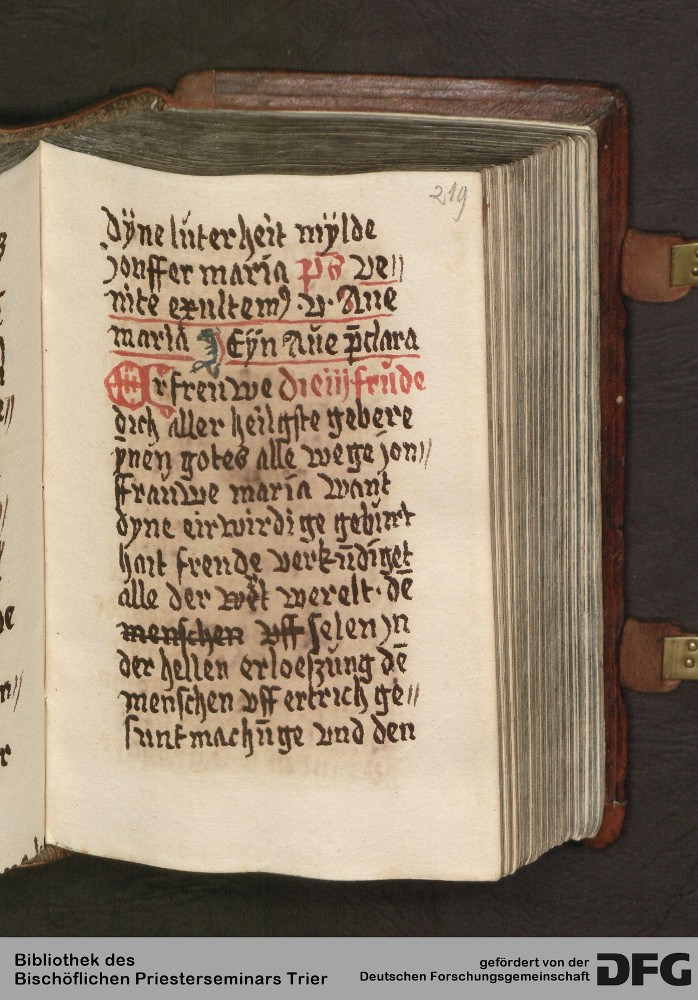 219
dÿne lûterheit mÿlde
jonffer maria p̄s ve//
nite exultem⁹ · v · Aue
maria Eÿn Aûe p̄clara
Erfreuwe die iiij frûde
dich aller heilgste gebere
ÿnen gotes alle wege jon//
ffrauwe maria want
dyne eirwirdige gebûrt
hait freude verkūdiget
alle der werelt · dē
menschen vff selen jn
der hellen erloeszûng dē
menschen vff ertrich ge//
suntmachūge vnd den
Bibliothek des
Bischöflichen Priesterseminars Trier
gefördert von der
Deutschen Forschungsgemeinschaft
DFG